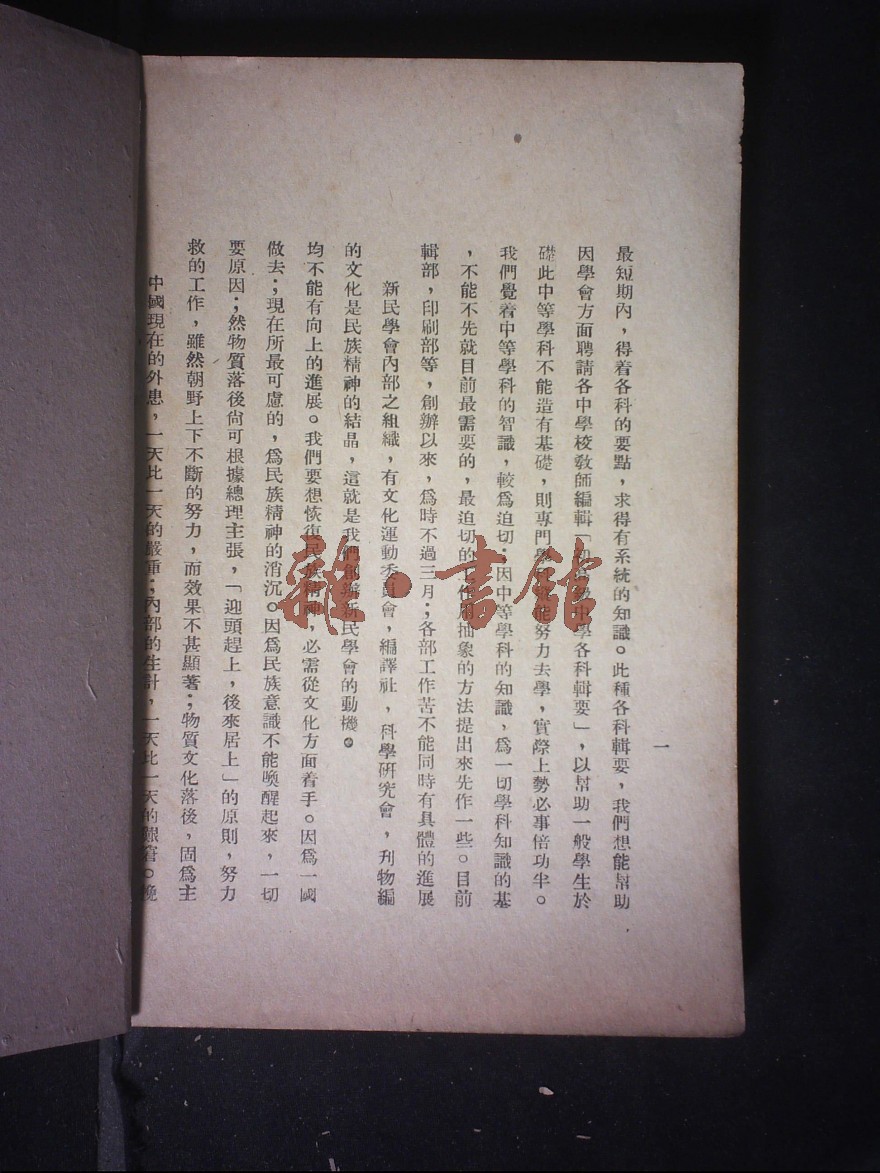 中國現在的外患，一天比一天的嚴重；內部的生計，一天比一天的艱窘。挽
救的工作，雖然朝野上下不斷的努力，而效果不甚顯著；物質文化落後，固爲主
要原因；然物質落後尙可根據總理主張，「迎頭趕上，後來居上」的原則，努力
做去；現在所最可慮的，爲民族精神的消沉。因爲民族意識不能喚醒起來，一切
均不能有向上的進展。我們要想恢復民族精神，必需從文化方面着手。因爲一國
的文化是民族精神的結晶，這就是我們創辦新民學會的動機。
新民學會內部之組織，有文化運動委員會，編譯社，科學研究會，刊物編
輯部，印刷部等，創辦以來，爲時不過三月；各部工作苦不能同時有具體的進展
，不能不先就目前最需要的，最迫切的工作用抽象的方法提出來先作一些。目前
我們覺着中等學科的智識，較爲迫切；因中等學科的知識，爲一切學科知識的基
礎此中等學科不能造有基礎，則專門學科能努力去學，實際上勢必事倍功半。
因學會方面聘請各中學校敎師編輯「初高級中學各科輯要」，以幫助一般學生於
最短期內，得着各科的要點，求得有系統的知識。此種各科輯要，我們想能幫助
一
雜·書館